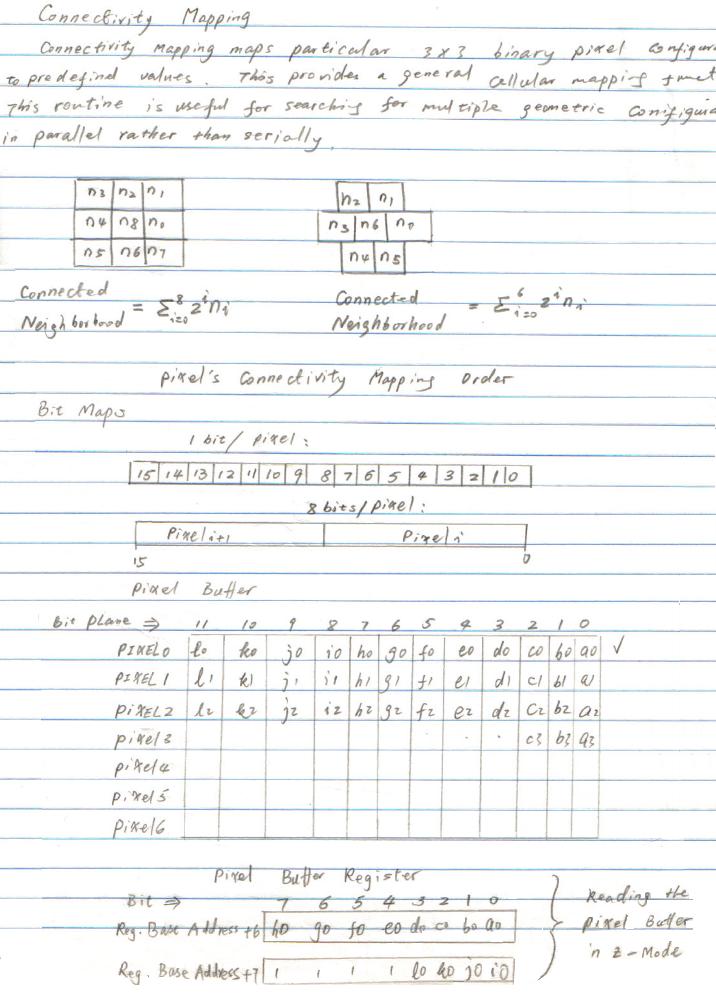 Connectivity Mapping
Connectivity Mapping maps particular 3x3 binary pixel configura
to predefind values. This provides a general cellular mapping funct
This routine is useful for searching for multiple geometric configura
in parallel rather than serially.
n3 n2 n1
n4 n8 n0
n5 n6 n7
n2 n1
n3 n6 n0
n4 n5
Connected Neighborhood = Σ_{i=0}^{8} 2^i n_i
Connected Neighborhood = Σ_{i=0}^{6} 2^i n_i
pixel's Connectivity Mapping Order
Bit Maps
1 bit/pixel:
15 14 13 12 11 10 9 8 7 6 5 4 3 2 1 0
8 bits/pixel:
Pixel i+1 Pixel i
15 0
Pixel Buffer
Bit Plane ⇒ 11 10 9 8 7 6 5 4 3 2 1 0
PIXEL0 l0 k0 j0 i0 h0 g0 f0 e0 d0 c0 b0 a0 ✓
PIXEL1 l1 k1 j1 i1 h1 g1 f1 e1 d1 c1 b1 a1
PIXEL2 l2 k2 j2 i2 h2 g2 f2 e2 d2 c2 b2 a2
pixel3 . . c3 b3 a3
pixel4
pixel5
pixel6
Pixel Buffer Register
Bit ⇒ 7 6 5 4 3 2 1 0
Reg. Base Address +6 h0 g0 f0 e0 d0 c0 b0 a0
Reg. Base Address +7 1 1 1 1 l0 k0 j0 i0
Reading the
Pixel Buffer
in Z-Mode